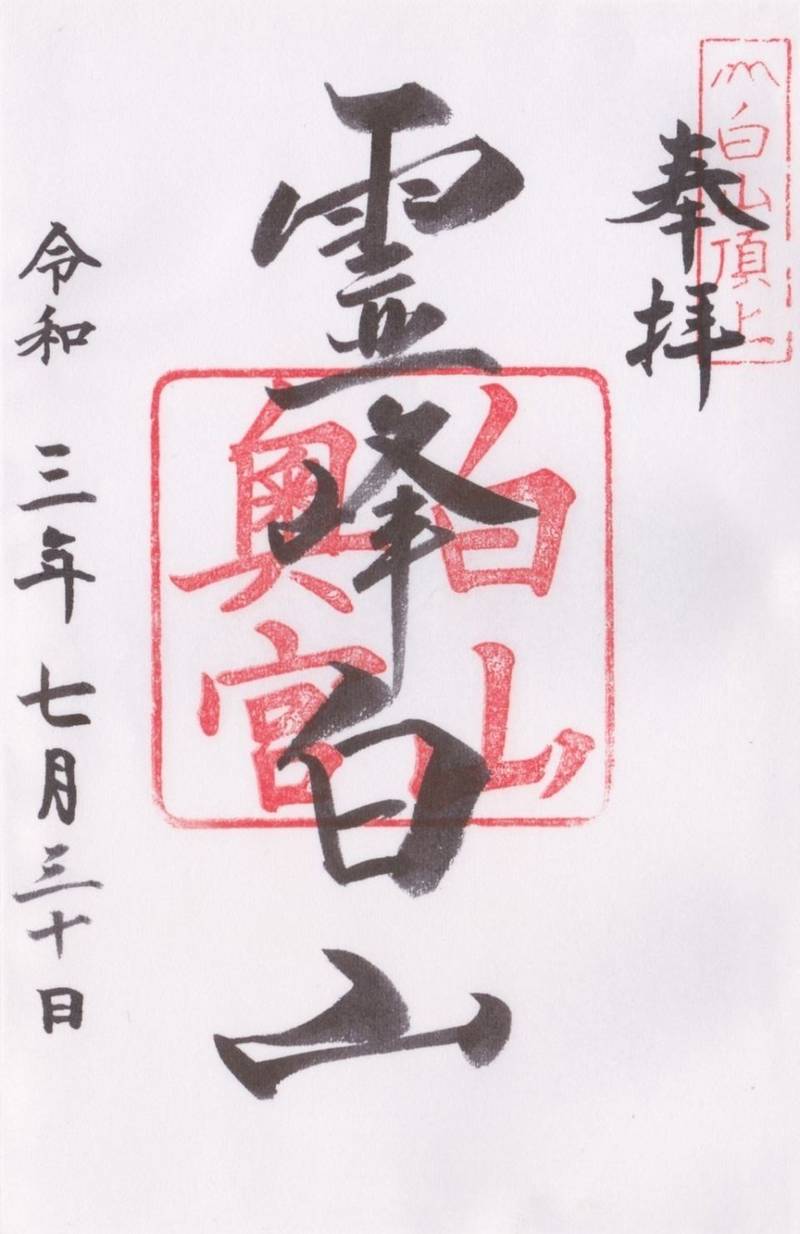 白山頂上
奉拝
霊峰白山
白山
奥宮
令和三年七月三十日